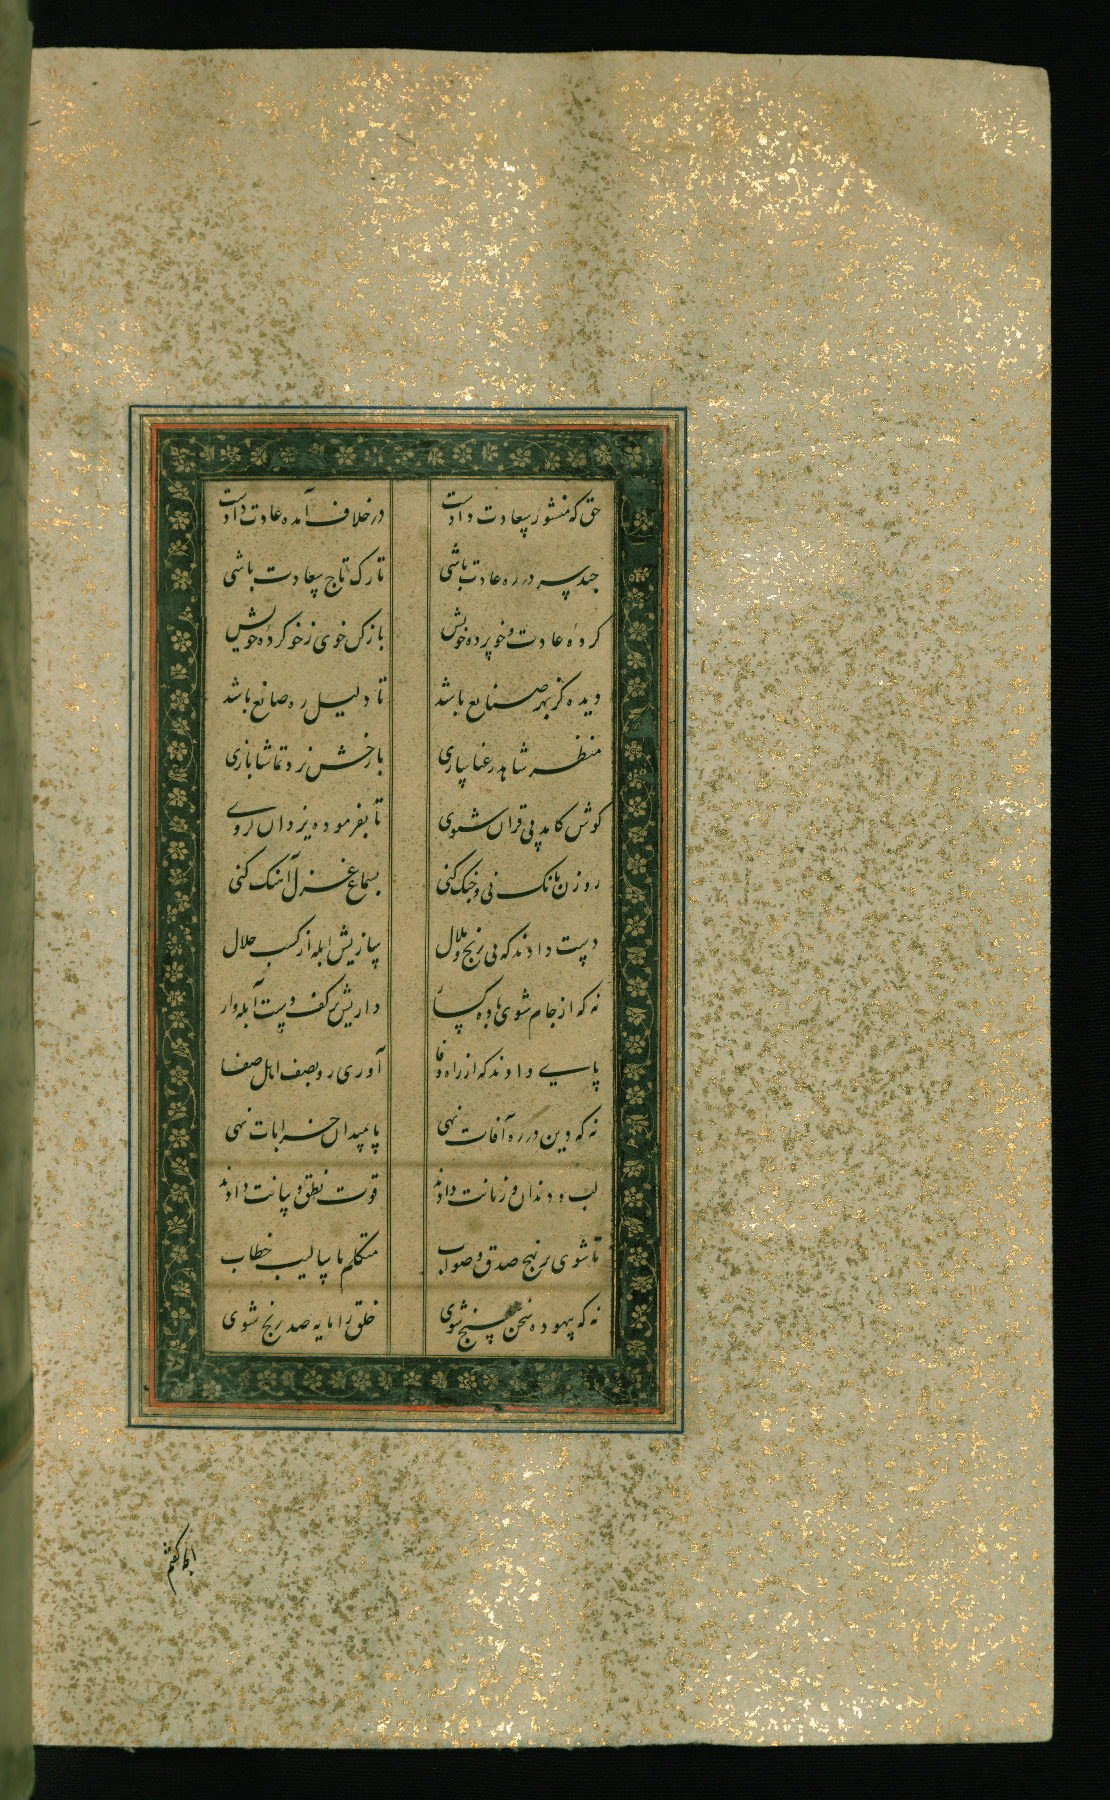 حق که منشور سعادت دادت در خلاف آمد عادت دادت
چند سر در ره عادت باشی تارک تاج سعادت باشی
کرده عادت و خو پرده خویش بازکن خوی ز خو کرده خویش
دیده کز بهر صنایع باشد تا دلیل ره صانع باشد
منظر شاهد رعنا سازی با رخش نرد تماشا بازی
کوش کامد پی قران شنوی تا بفرموده یزدان کروی
روزن بانک نی و چنک کنی بسماع غزل آهنک کنی
دست دادند که بی رنج و ملال سازیش ابله از کسب حلال
نه که از جام شوی باده کسار داریش بر کف دست آبله وار
پای دادند که از راه وفا آوری رو بصف اهل صفا
نه که دین در ره آفات نهی پا بمیدان خرابات نهی
لب و دندان و زبانت دادند قوت نطق و بیانت دادند
تا شوی بر نهج صدق و صواب متکلم باسالیب خطاب
نه که بیهوده سخن سنج شوی خلق را مایه صد رنج شوی
کفتم